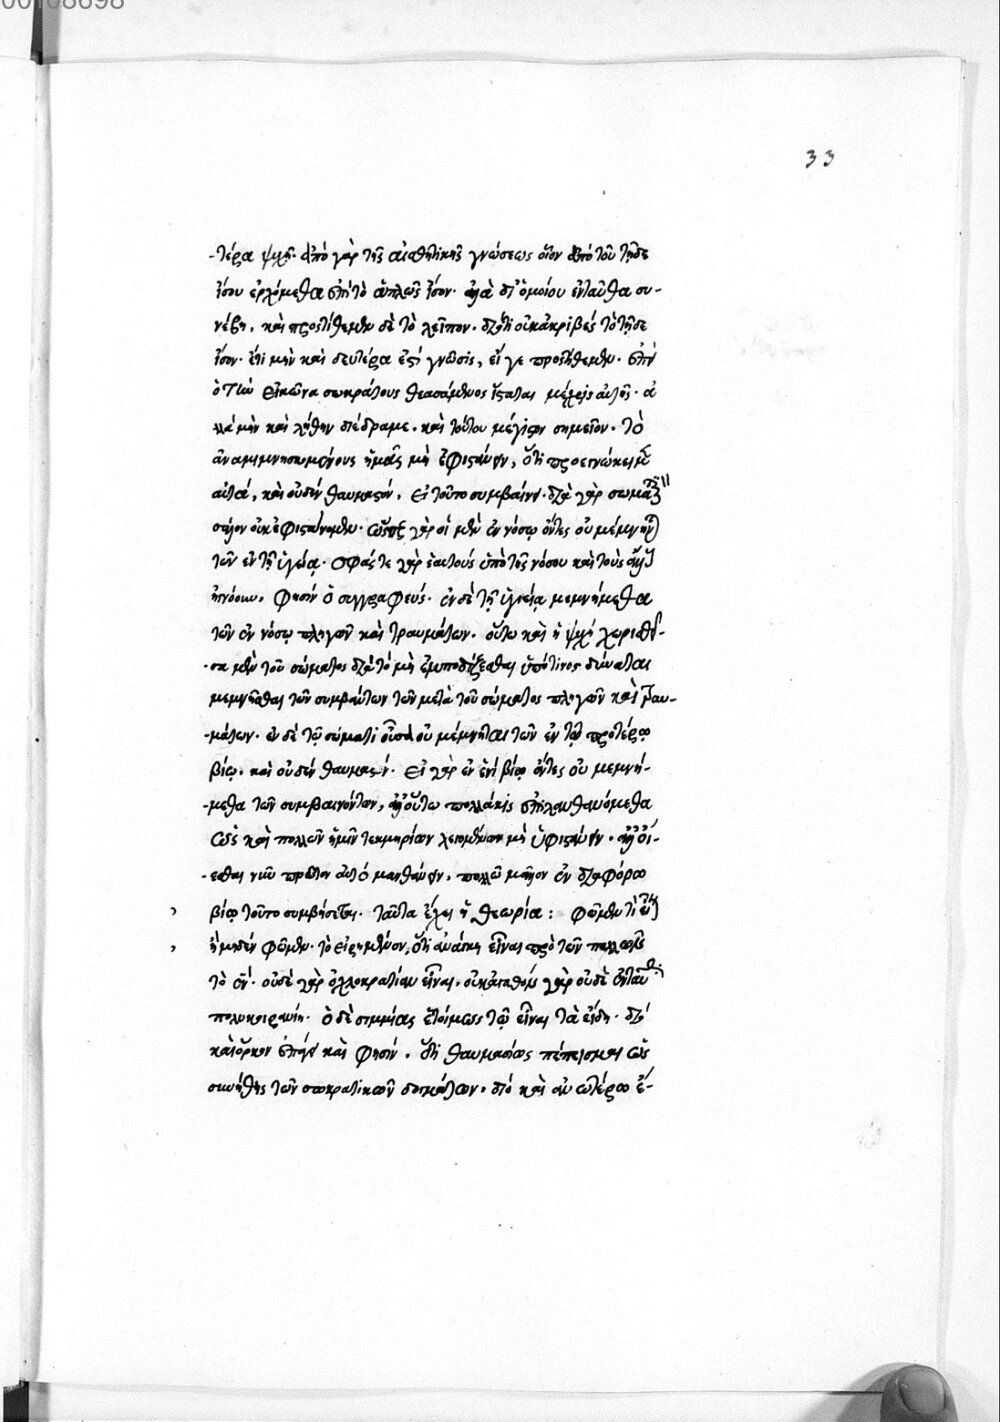 33
-τέρα ψυχή· ἀπὸ γὰρ τῆς αἰσθητικῆς γνώσεως οἷον ἀπὸ τοῦ τῇδε
ἴσου ἐρχόμεθα ἐπὶ τὸ ἁπλῶς ἴσον· ἀλλὰ δι' ὁμοίου ἐνταῦθα συ-
νέβη, καὶ προστίθεμεν δὲ τὸ λεῖπον· διότι οὐκ ἀκριβὲς τὸ τῇδε
ἴσον· ἔτι μὴν καὶ δευτέρα ἐστὶ γνῶσις, εἴ γε προστίθεμεν·
ὁ τὴν εἰκόνα σωκράτους θεασάμενος ἵσταται μέχρις αὐτῆς· ἀ
λλὰ μὴν καὶ λήθην διέδραμε. καὶ τούτου μέγιστον σημεῖον· τὸ
ἀναμιμνησκομένους ἡμᾶς μὴ ἐφιστάνειν, ὅτι προεγνώκειμεν
αὐτά, καὶ οὐδὲν θαυμαστόν, εἰ τοῦτο συμβαίνει· διὰ γὰρ
οὐκ ἐφιστάνομεν· ὥσπερ γὰρ οἱ μὲν ἐν νόσῳ ὄντες οὐ μέμνηνται
τῶν ἐν τῇ ὑγιείᾳ· σφᾶς τε γὰρ ἑαυτοὺς ὑπὸ τῆς νόσου καὶ τοὺς ἄλλους
ἠγνόουν, φησὶν ὁ συγγραφεύς· ἐν δὲ τῇ ὑγιείᾳ μεμνήμεθα
τῶν ἐν νόσῳ πληγῶν καὶ τραυμάτων. οὕτω καὶ ἡ ψυχὴ χωρισθεῖ-
-σα μὲν τοῦ σώματος διὰ τὸ μὴ ἐμποδίζεσθαι ὑπό τινος δύναται
μεμνῆσθαι τῶν συμβάντων τῶν μετὰ τοῦ σώματος πληγῶν καὶ τραυ-
-μάτων· ἐν δὲ τῷ σώματι οὖσα οὐ μέμνηται τῶν ἐν τῷ προτέρῳ
βίῳ. καὶ οὐδὲν θαυμαστόν· εἰ γὰρ ἐν ἑνὶ βίῳ ὄντες οὐ μεμνή-
-μεθα τῶν συμβαινόντων, ἀλλ' οὕτω πολλάκις ἐπιλανθανόμεθα
ὡς καὶ πολλῶν ἡμῖν τεκμηρίων λεγομένων μὴ ἐφιστάνειν. ἀλλ' οἴ-
-εσθαι νῦν πρῶτον αὐτὸ μανθάνειν, πολλῷ μᾶλλον ἐν διαφόρῳ
βίῳ τοῦτο συμβήσεται. ταῦτα ἔχει ἡ θεωρία: φῶμέν τι εἶναι
ἢ μηδὲν φῶμεν· τὸ εἰρημένον, ὅτι ἀνάγκη εἶναι πρὸ τῶν πολλῶν
τὸ ἕν· οὐδὲ γὰρ ὀχλοκρατίαν εἶναι. οὐκ ἀγαθὸν γὰρ οὐδὲ ἐνταῦθα
πολυκοιρανίη· ὁ δὲ σιμμίας ἑτοίμως τῷ εἶναι τὰ εἴδη·
καὶ ὅρκον ἐπάγει καὶ φησίν. ὅτι θαυμασίως πέπεισμαι ὡς
συνήθης τῶν σωκρατικῶν δογμάτων. διὸ καὶ ἀνωτέρω ἐ-